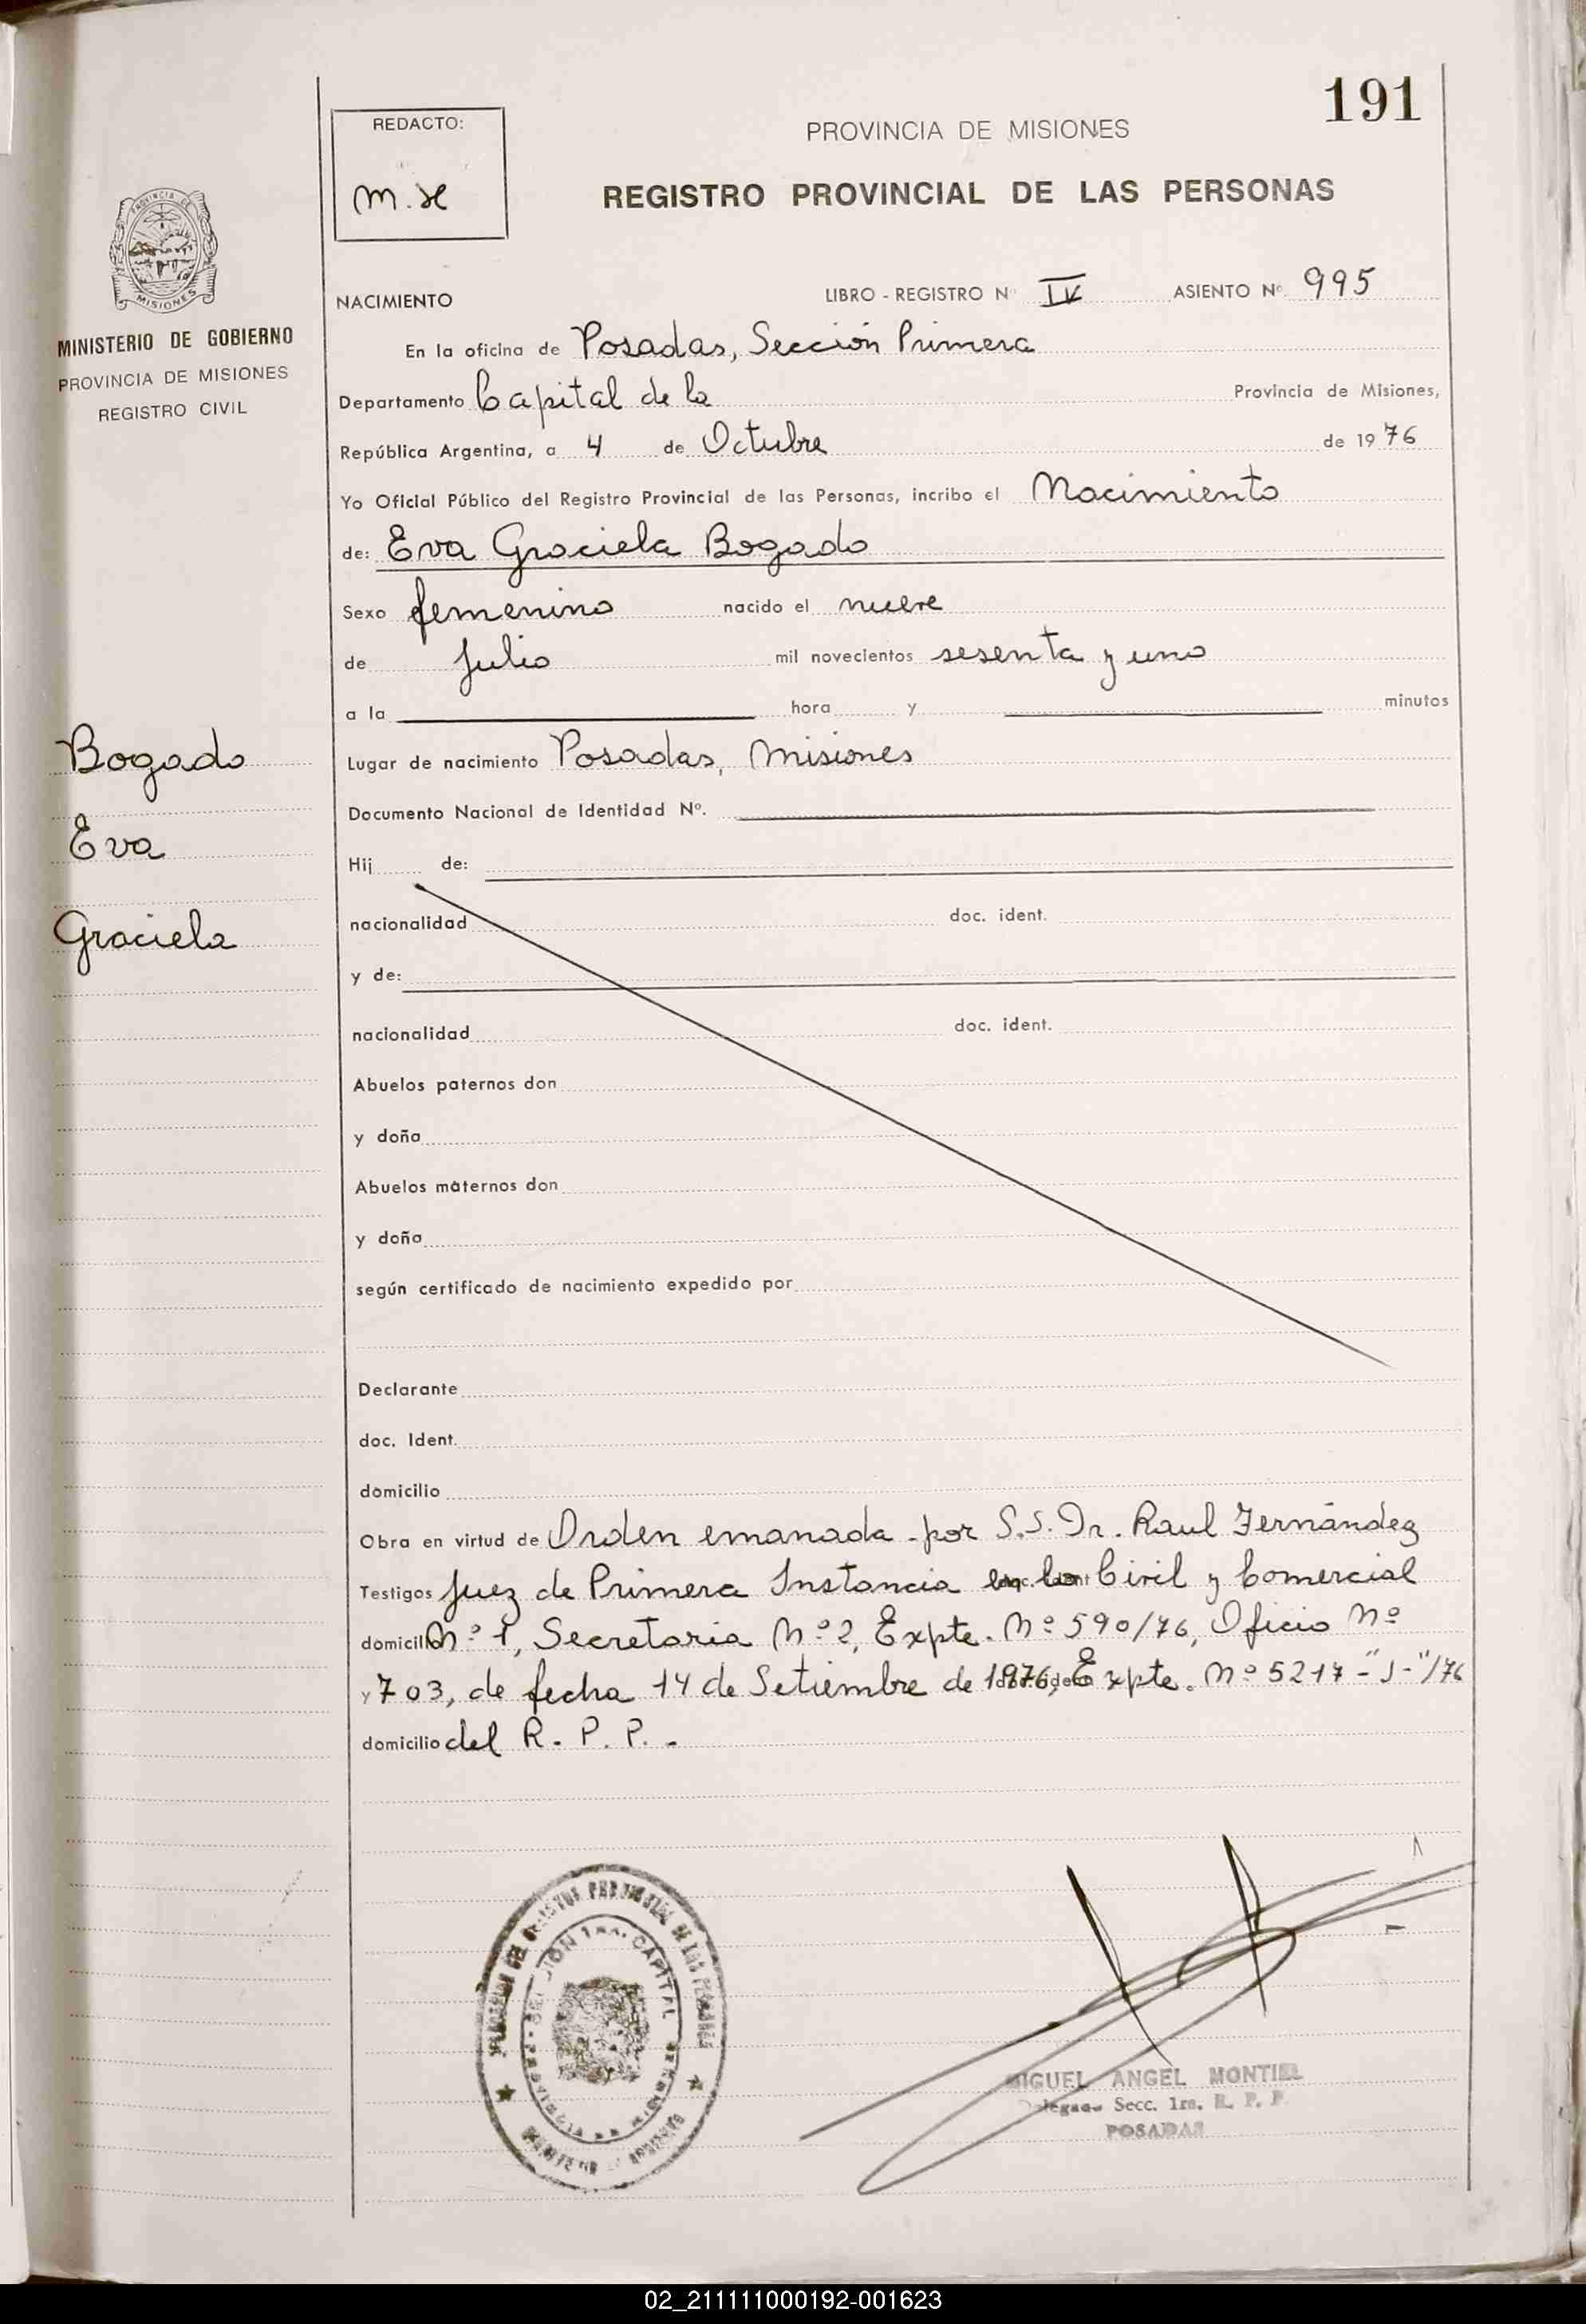 191
REDACTO:
PROVINCIA DE MISIONES
REGISTRO PROVINCIAL DE LAS PERSONAS
MISIONES
MINISTERIO DE GOBIERNO
PROVINCIA DE MISIONES
REGISTRO CIVIL
NACIMIENTO LIBRO - REGISTRO Nº IV ASIENTO Nº 995
En la oficina de Posadas, Sección Primera
Departamento Capital de la Provincia de Misiones,
República Argentina, a 4 de Octubre de 1976
Yo Oficial Público del Registro Provincial de las Personas, incribo el Nacimiento
de: Eva Graciela Bogado
Sexo femenino nacido el nueve
de Julio mil novecientos sesenta y uno
a la hora y minutos
Lugar de nacimiento Posadas, Misiones
Documento Nacional de Identidad Nº.
Hij de:
nacionalidad doc. ident.
y de:
nacionalidad doc. ident.
Abuelos paternos don
y doña
Abuelos maternos don
y doña
según certificado de nacimiento expedido por
Declarante
doc. Ident.
domicilio
Obra en virtud de Orden emanada por S.S. Dr. Raul Fernández
Testigos Juez de Primera Instancia en lo Civil y Comercial
domicilio Nº 1, Secretaria Nº 2, Expte. Nº 590/76, Oficio Nº
y 703, de fecha 14 de Setiembre de 1976, Expte. Nº 5217-"J-"/76
domicilio del R. P. P. -
Bogado
Eva
Graciela
SECCION 1ra. CAPITAL
MIGUEL ANGEL MONTIEL
Delegado Secc. 1ra. R. P. P.
POSADAS
02_211111000192-001623